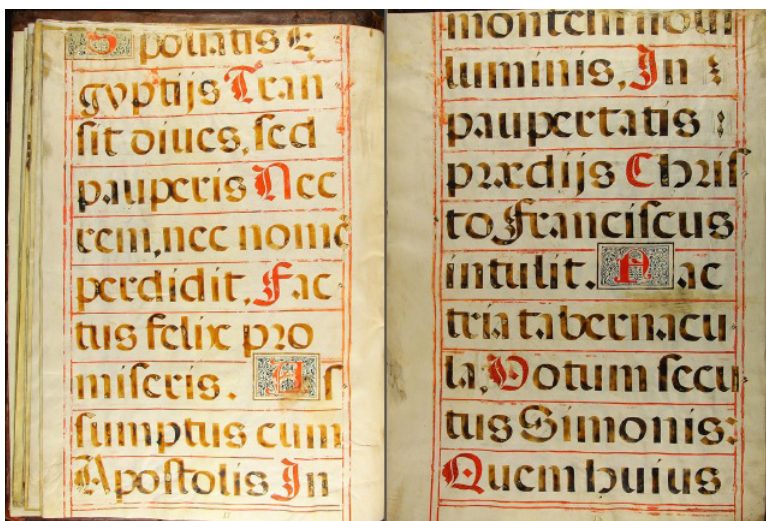 Spoliatis E
gyptijs Tran
sit diues, sed
pauperis Nec
rem, nec nomē
perdidit, Fac
tus felix pro
miseris. As
sumptus cum
Apostolis In
montem noui
luminis, In
paupertatis
prædijs Chris
to Franciscus
intulit. Fac
tria tabernacu
la, Votum secu
tus Simonis:
Quem huius